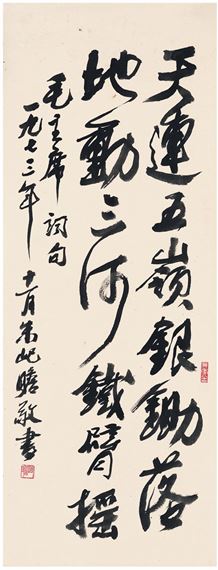 天連五嶺銀鋤落
地動三河鐵臂摇
毛主席詞句
一九七三年十一月朱屺瞻敬書